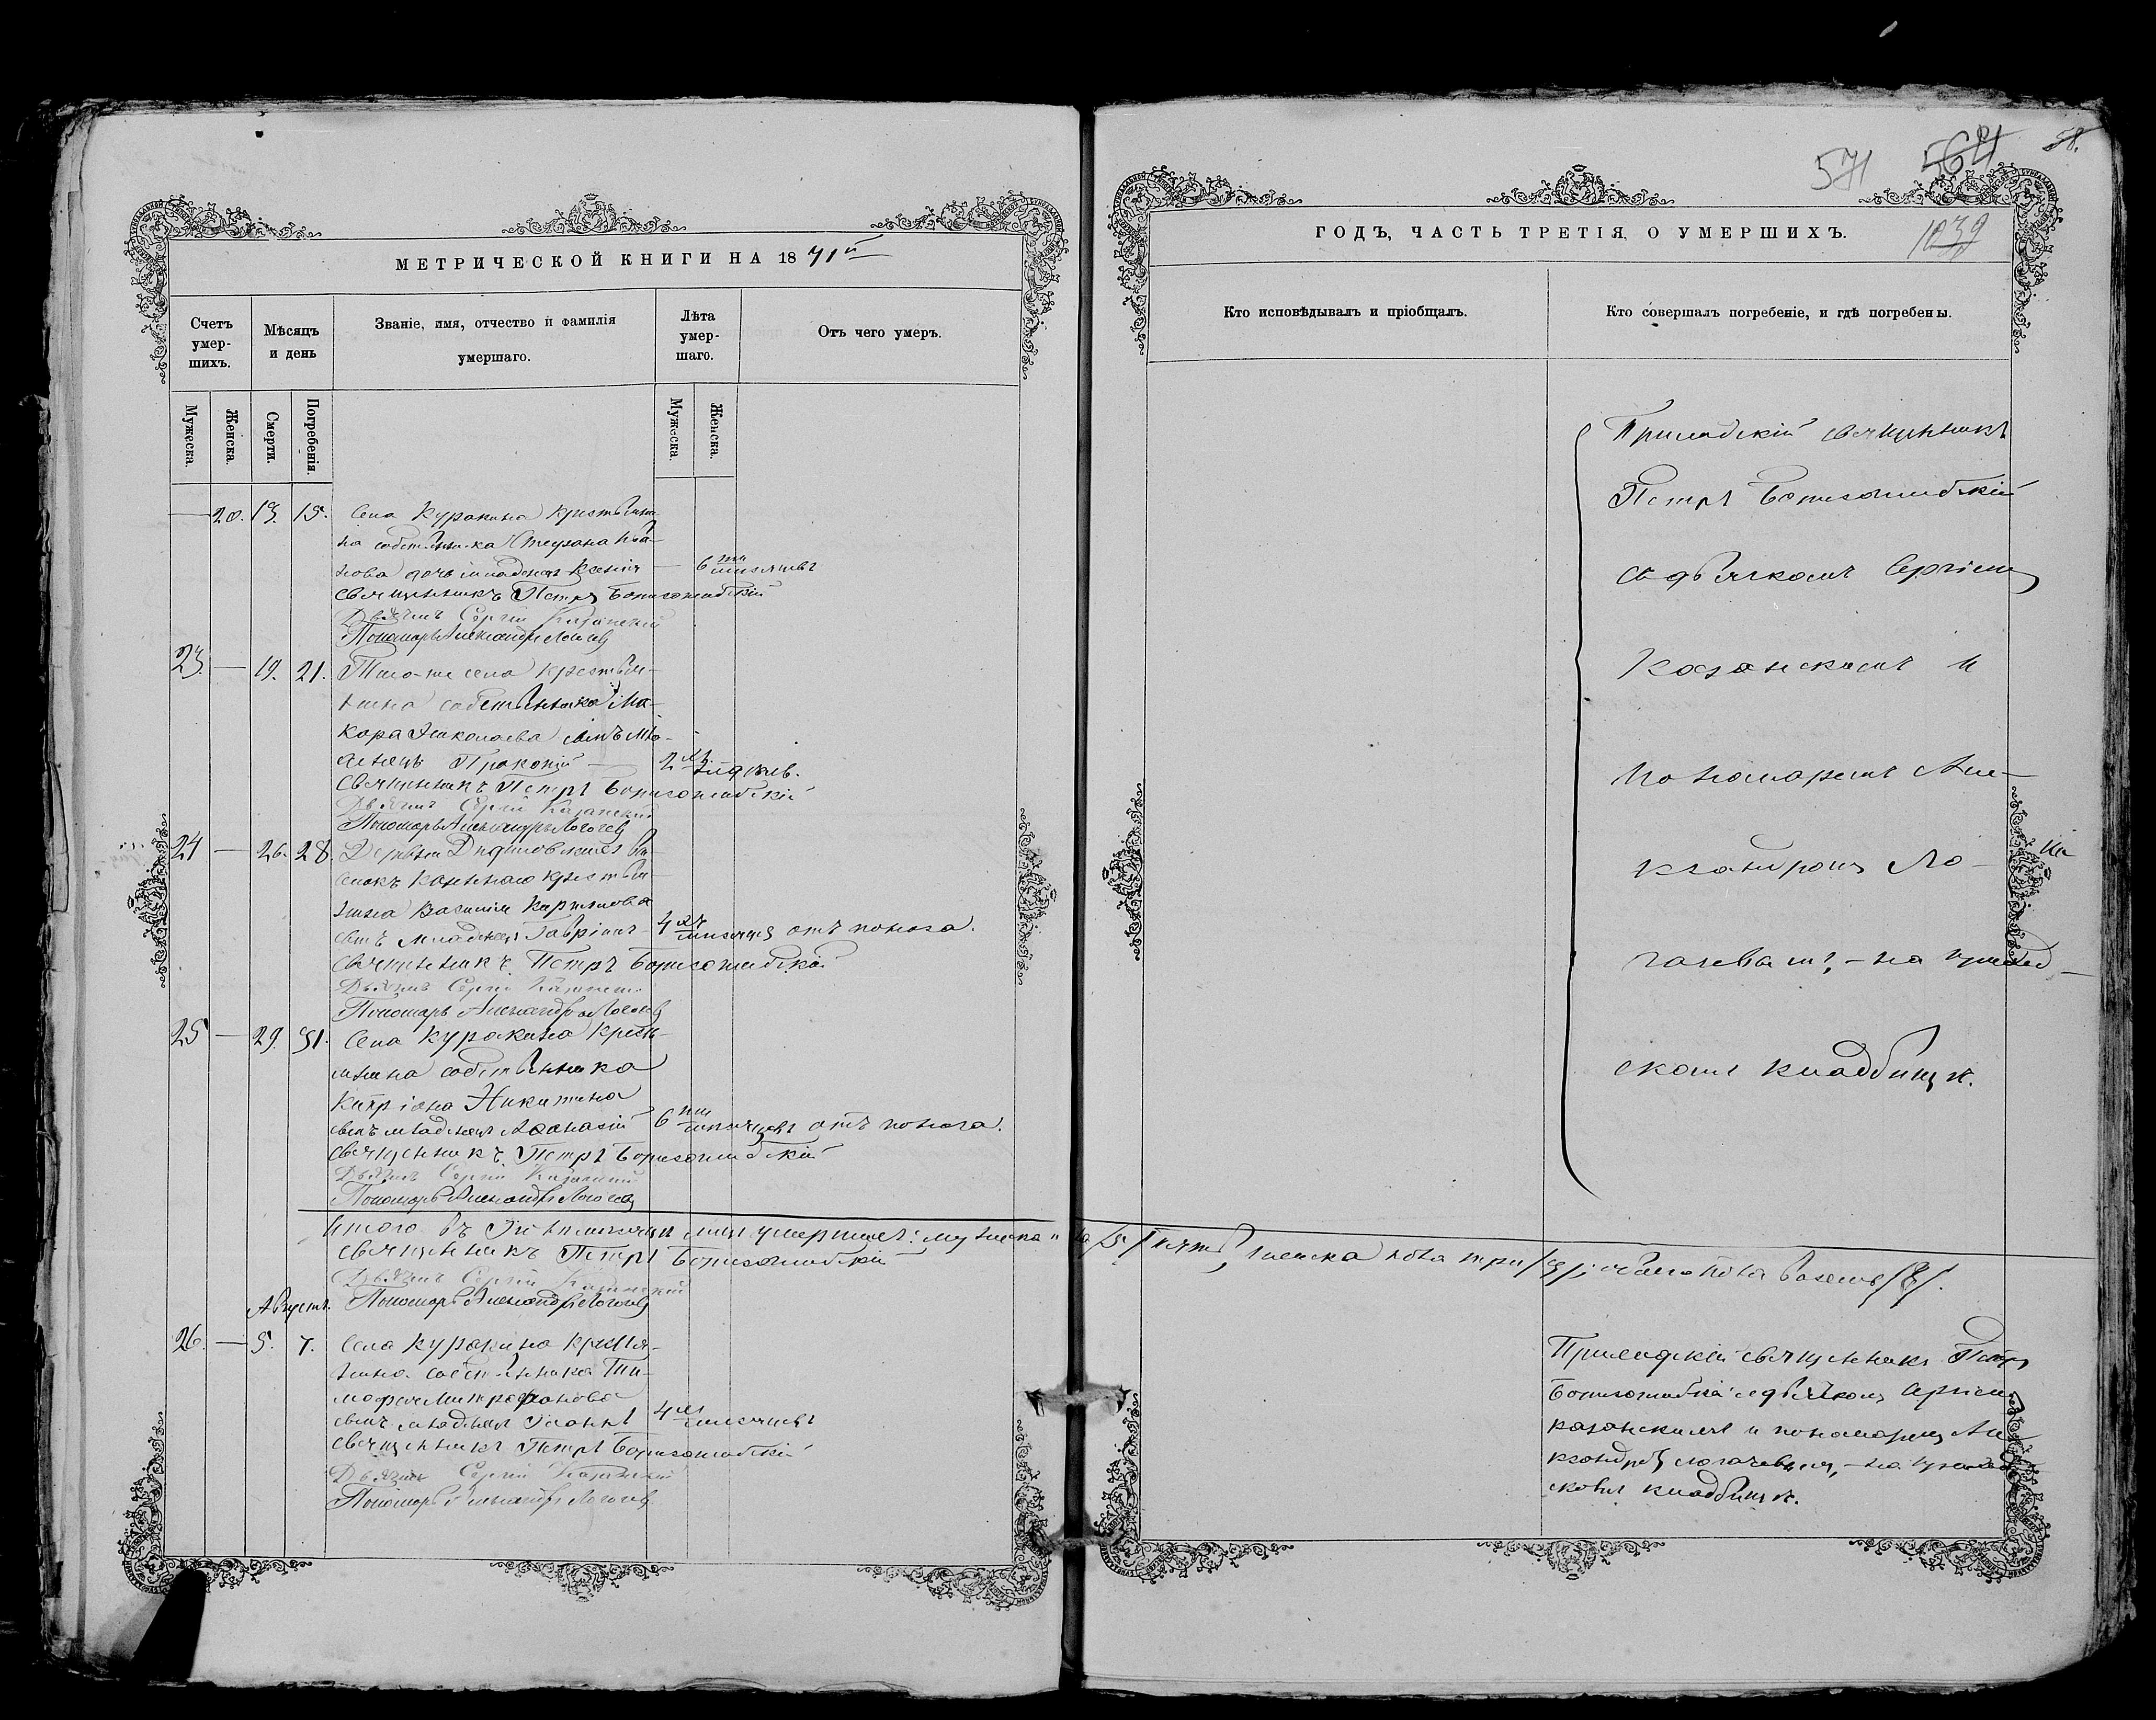 МЕТРИЧЕСКОЙ КНИГИ НА 1871й
Счетъ умер-шихъ.
Мѣсяцъ и день
Званіе, имя, отчество и фамилія умершаго.
Лѣта умер-шаго.
Отъ чего умеръ.
Мужеска.
Женска.
Смерти.
Погребенія.
Мужеска.
Женска.
— 20. 13. 15. Села Куракина крестьяни-
на собственника Стефана Ива-
нова дочь младенецъ Ксенія — 6ти мѣсяцевъ
Священникъ Петръ Борисоглѣбскій
Дьячекъ Сергій Казанскій
Пономарь Александръ Логачевъ
23. — 19. 21. Того-же села крестьян-
нина собственника Ма-
кара Николаева сынъ мла-
денецъ Прокопій — 2хъ недѣль.
Священникъ Петръ Борисоглѣбскій
Дьячекъ Сергій Казанскій
Пономарь Александръ Логачевъ
24 — 26. 28. Деревни
крестья-
нина Василія
сынъ младенецъ Гавріилъ — 4хъ мѣсяцевъ отъ поноса.
Священникъ Петръ Борисоглѣбскій
Дьячекъ Сергій Казанскій
Пономарь Александръ Логачевъ
25 — 29. 31. Села Куракина крест-
янина собственника
Кипріана Никитина
сынъ младенецъ Афанасій 6ти мѣсяцевъ отъ поноса.
Священникъ Петръ Борисоглѣбскій
Дьячекъ Сергій Казанскій
Пономарь Александръ Логачевъ
Итого въ Іюлѣ мѣсяцѣ умершихъ: мужеска пола /5/ пять, женска пола три /3/; обоего пола восемь /8/.
Священникъ Петръ Борисоглѣбскій
Дьячекъ Сергій Казанскій
Августъ. Пономарь Александръ Логачевъ
26. — 5. 7. Села Куракина крестья-
нина собственника Ти-
мофея Митрофанова
сынъ младенецъ Іоаннъ 4хъ мѣсяцевъ
Священникъ Петръ Борисоглѣбскій
Дьячекъ Сергій Казанскій
Пономарь Александръ Логачевъ
571 564 58.
1039
ГОДЪ, ЧАСТЬ ТРЕТІЯ, О УМЕРШИХЪ.
Кто исповѣдывалъ и пріобщалъ.
Кто совершалъ погребеніе, и гдѣ погребены.
Приходскій священникъ
Петръ Борисоглѣбскій
съ дьячкомъ Сергіемъ
Казанскимъ и
пономаремъ Але-
ксандромъ Ло-
гачевымъ, — на приход-
скомъ кладбищѣ.
Приходскій священникъ Петръ
Борисоглѣбскій съ дьячкомъ Сергіемъ
Казанскимъ и пономаремъ Але-
ксандромъ Логачевымъ, — на приход-
скомъ кладбищѣ.